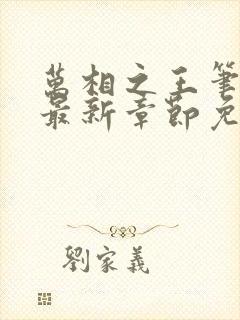 萬相之王筆
最新章節免
劉家義